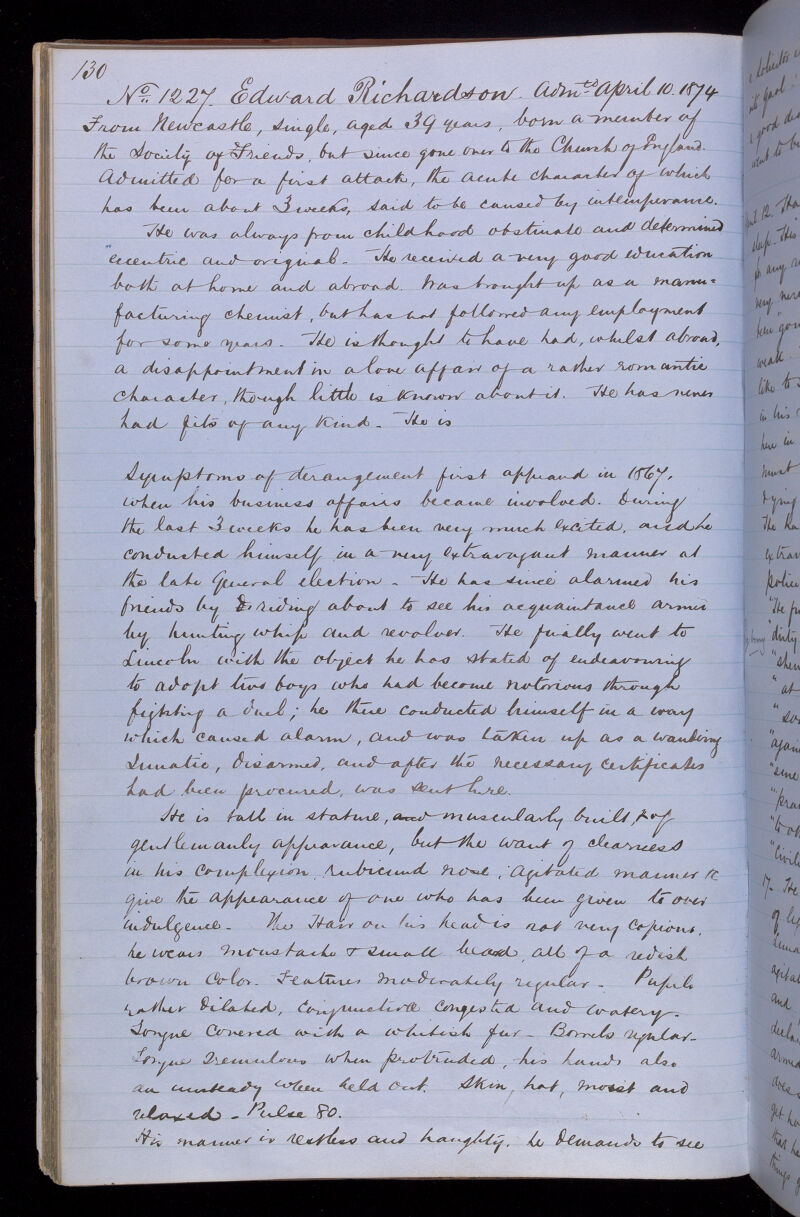 130
No. 1227. Edward Richardson. Admted April 10. 1874
From Newcastle, single, aged 39 years, born a member of
the Society of Friends, but since gone over to the Church of England.
Admitted for a first attack, the acute character of which
has been about 3 weeks, said to be caused by intemperance.
He was always from childhood obstinate and determined
"eccentric and original. He received a very good education
both at home and abroad. Was brought up as a manu=
facturing chemist, but has not followed any employment
for some years. He is thought to have had, whilst abroad,
a disappointment in a love affair of a rather romantic
character, though little is known about it. He has never
had fits of any kind. He is
Symptoms of derangement first appeared in 1867,
when his business affairs became involved. During
the last 3 weeks he has been very much excited, and he
conducted himself in a very extravagant manner at
the late General election. He has since alarmed his
friends by riding about to see his acquaintance armed
by hunting whip and revolver. He finally went to
Lincoln with the object he has stated of endeavouring
to adopt two boys who had become notorious through
fighting a duel; he there conducted himself in a way
which caused alarm, and was taken up as a wandering
Lunatic, disarmed, and after the necessary certificates
had been procured, was sent here.
He is tall in stature, and muscularly built, & of
gentlemanly appearance, but the want of clearness
in his complexion, rubicund nose, agitated manner &c
give the appearance of one who has been given to over
indulgence. The Hair on his head is not very copious,
he wears moustache & small beard, all of a redish
brown color. Features moderately regular. Pupils
rather dilated, conjunctivae congested and watery.
Tongue covered with a whitish fur. Bowels regular.
Tongue tremulous when protruded, his hands also
are unsteady when held out. Skin, hot, moist and
relaxed. Pulse 80.
His manner is restless and haughty, he demands to see